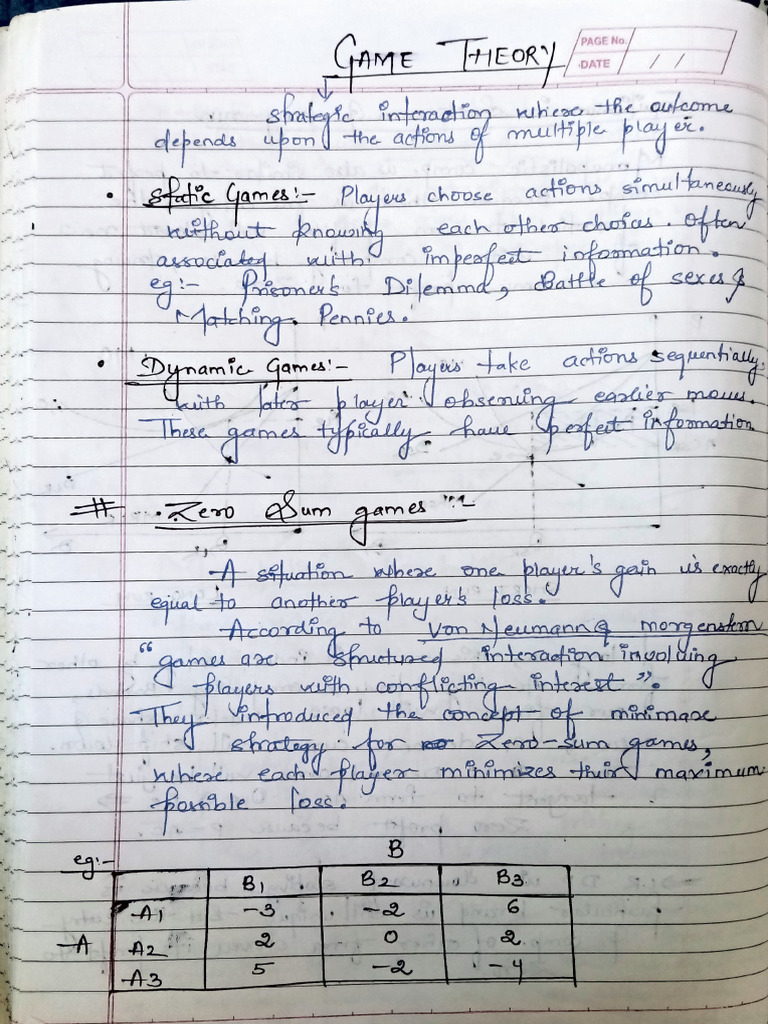 GAME THEORY
PAGE No.
DATE / /
strategic interaction where the outcome
depends upon the actions of multiple player.
• Static Games:- Players choose actions simultaneously
without knowing each other choices. Often
associated with imperfect information.
eg:- Prisoner's Dilemma, Battle of sexes &
Matching Pennies.
• Dynamic Games:- Players take actions sequentially.
with later player observing earlier moves.
These games typically have perfect information
# Zero Sum games :-
A situation where one player's gain is exactly
equal to another player's loss.
According to Von Neumann & morgenstern
"games are structured interaction involving
players with conflicting interest".
They introduced the concept of minimax
strategy for Zero-sum games,
where each player minimizes their maximum
possible loss.
eg:- B
B1 B2 B3
A1 -3 -2 6
A A2 2 0 2
A3 5 -2 -4